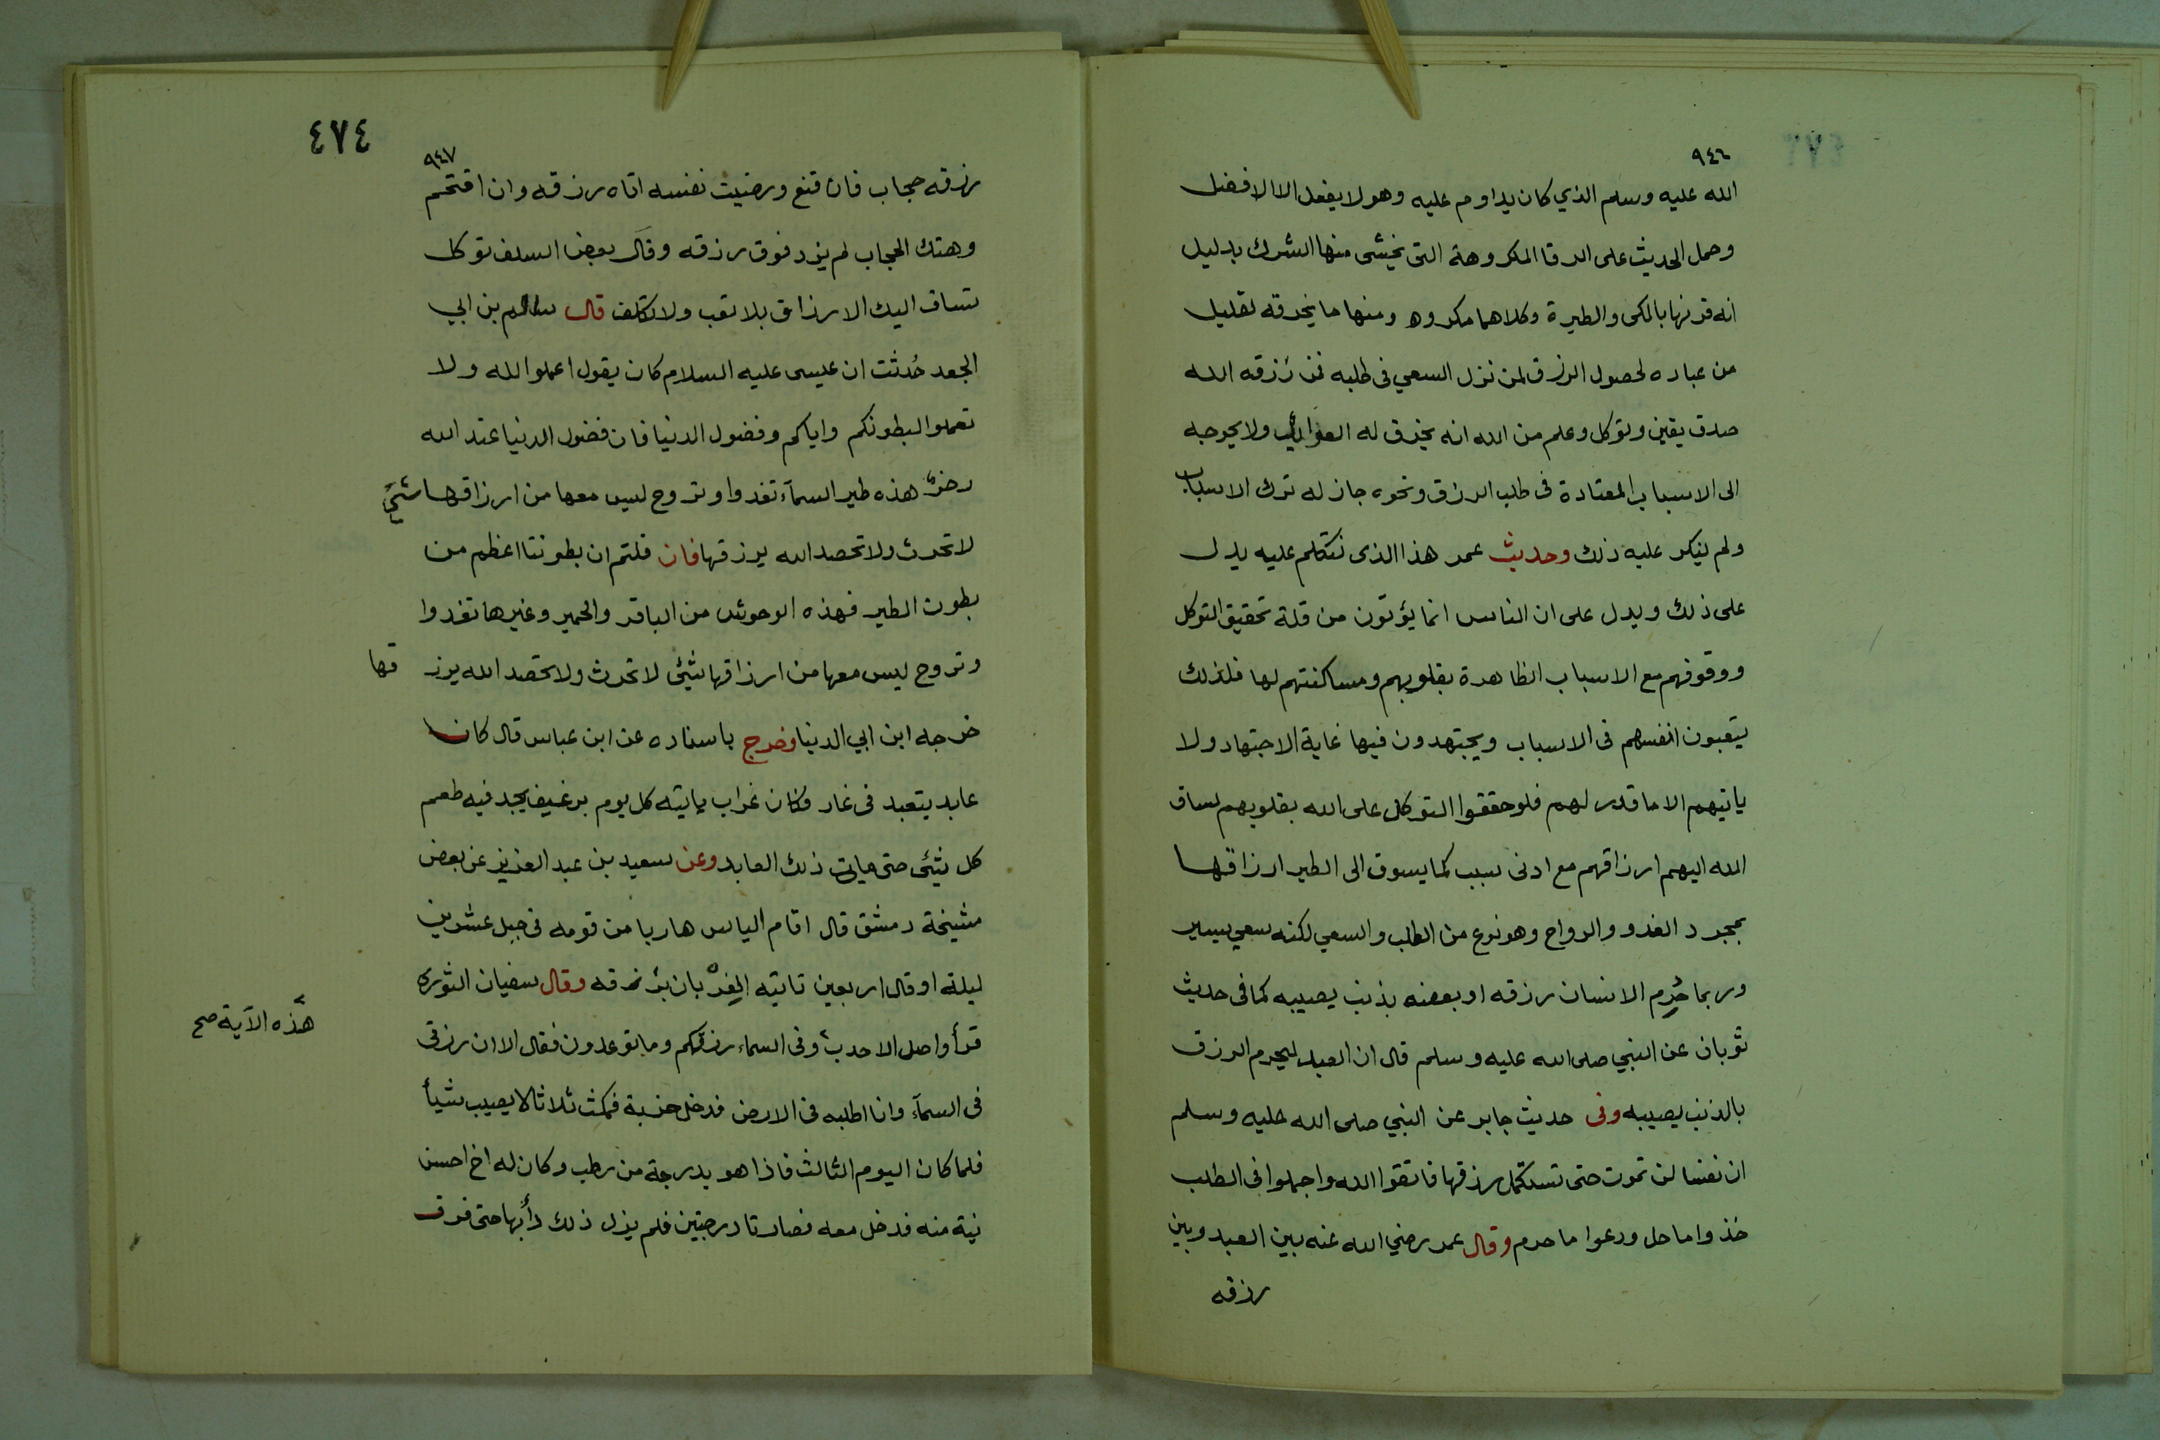 ٩٤٦
الله عليه وسلم الذي كان يداوم عليه وهو لا يفعل الا الافضل
وحمل الحديث على الرقا المكروهة التى يخشى منها الشرك بدليل
انه قرنها بالكى والطيرة وكلاهما مكروه ومنها ما يخرقه لقليل
من عباده لحصول الرزق لمن نزل السعي فى طلبه فمن رزقه الله
صدق يقين وتوكل وعلم من الله انه يخرق له العوايد ولا يحوجه
الى الاسباب المعتادة فى طلب الرزق ونحوه جاز له ترك الاسباب
ولم ينكر عليه ذلك وحديث عمر هذا الذى نتكلم عليه يدل
على ذلك ويدل على ان الناس انما يؤتون من قلة تحقيق التوكل
ووقوفهم مع الاسباب الظاهرة بقلوبهم ومساكنتهم لها فلذلك
يتعبون انفسهم فى الاسباب ويجتهدون فيها غاية الاجتهاد ولا
ياتيهم الا ما قدر لهم فلو حققوا التوكل على الله بقلوبهم لساق
الله اليهم ارزاقهم مع ادنى سبب كما يسوق الى الطير ارزاقها
بمجرد الغدو والرواح وهو نوع من الطلب والسعي لكنه سعي يسير
وربما حُرِم الانسان رزقه او بعضه بذنب يصيبه كما فى حديث
ثوبان عن النبي صلى الله عليه وسلم قال ان العبد ليحرم الرزق
بالذنب يصيبه وفى حديث جابر عن النبي صلى الله عليه وسلم
ان نفسا لن تموت حتى تستكمل رزقها فاتقوا الله واجملوا فى الطلب
خذوا ما حل ودعوا ما حرم وقال عمر رضي الله عنه بين العبد وبين
رزقه
٤٧٤
٩٤٧
رزقه حجاب فان قنع ورضيت نفسه اتاه رزقه وان اقتحم
وهتك الحجاب لم يزد فوق رزقه وقال بعض السلف توكل
تساق اليك الارزاق بلا تعب ولا تكلف قال سالم بن ابي
الجعد حُدثت ان عيسى عليه السلام كان يقول اعملوا لله ولا
تعملوا لبطونكم واياكم وفضول الدنيا فان فضول الدنيا عند الله
رجز هذه طير السمآء تغدوا وتروح ليس معها من ارزاقها شئ
لا تحرث ولا تحصد الله يرزقها فان قلتم ان بطوننا اعظم من
بطون الطير فهذه الوحوش من الباقر والحمير وغيرها تغدوا
وتروح ليس معها من ارزاقها شئ لا تحرث ولا تحصد الله يرز قها
خرجه ابن ابي الدنيا وخرج باسناده عن ابن عباس قال كان
عابد يتعبد فى غار وكان غراب ياتيه كل يوم برغيف يجد فيه طعم
كل شئ حتى مات ذلك العابد وعن سعيد بن عبد العزيز عن بعض
مشيخة دمشق قال اقام الياس هاربا من قومه فى جبل عشرين
ليلة او قال اربعين تاتيه الغربان برزقه وقال سفيان الثورى
قرأ واصل الاحدب وفى السماء رزقكم وما توعدون فقال الا ان رزقى
هذه الآية صح
فى السمآء وانا اطلبه فى الارض فدخل خربة فمكث ثلاثا لا يصيب شيأ
فلما كان اليوم الثالث فاذا هو بدرجة من رطب وكان له اخ احسن
نية منه فدخل معه فصارتا درجتين فلم يزل ذلك دأبها حتى فرق